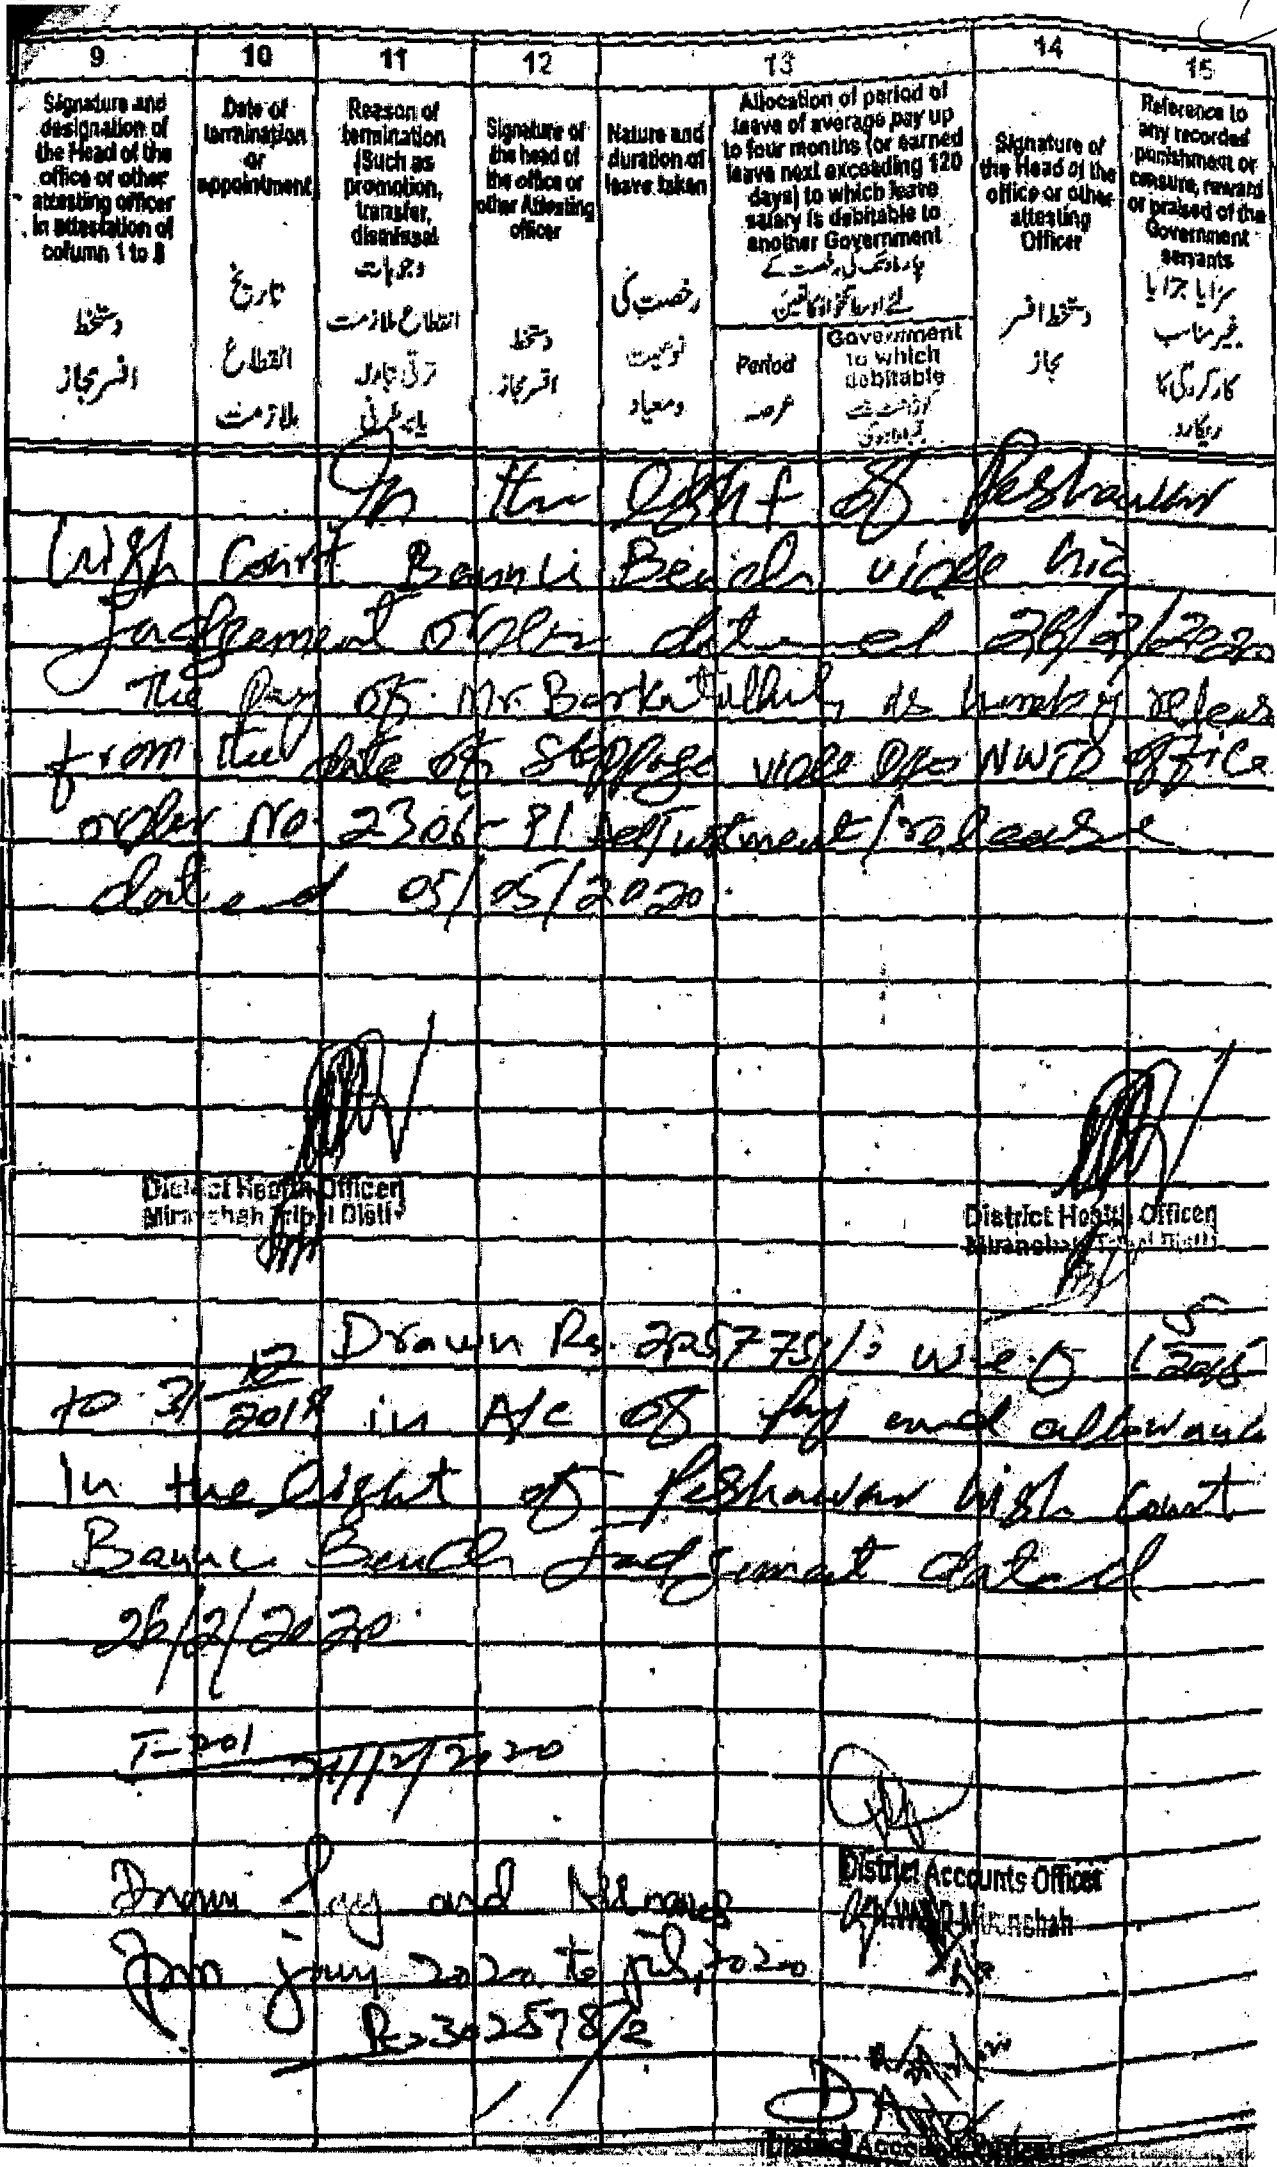 9 10 11 12 13 14 15
Signature and
designation of
the Head of the
office or other
attesting officer
in attestation of
column 1 to 8
دستخط
افسر مجاز
Date of
termination
or
appointment
تاریخ
انقطاع
ملازمت
Reason of
termination
(Such as
promotion,
transfer,
dismissal
وجوہات
انقطاع ملازمت
ترقی تبادلہ
یا برطرفی
Signature of
the head of
the office or
other Attesting
officer
دستخط
افسر مجاز
Nature and
duration of
leave taken
رخصت کی
نوعیت
ومعیاد
Allocation of period of
leave of average pay up
to four months (or earned
leave next exceeding 120
days) to which leave
salary is debitable to
another Government
Period
عرصہ
Government
to which
debitable
Signature of
the Head of the
office or other
attesting
Officer
دستخط افسر
مجاز
Reference to
any recorded
punishment or
censure, reward
or praised of the
Government
servants
سزایا جزایا
غیر مناسب
کارکردگی کا
ریکارڈ
In the light of Peshawar
high Court Bannu Bench vide his
Judgement order dated 26/2/2020
The Pay of Mr. Barkatullah, is hereby releas
from the date of stoppage vide DHO NWTD office
order No. 2306-91 Adjustment/release
dated 05/05/2020.
District Health Officer
Miranshah Tribal Distt
District Health Officer
Miranshah Tribal Distt
Drawn Rs. 2257751/= w.e.f 1 5/2015
to 31 12/2019 in A/c of Pay and allowance
In the light of Peshawar high Court
Bannu Bench Judgment dated
26/2/2020.
T-201 /12/2020
District Accounts Officer
Miranshah
Drawn Pay and Allowances
from jany 2020 to july, 2020
Rs 302578/=
District Accounts Officer